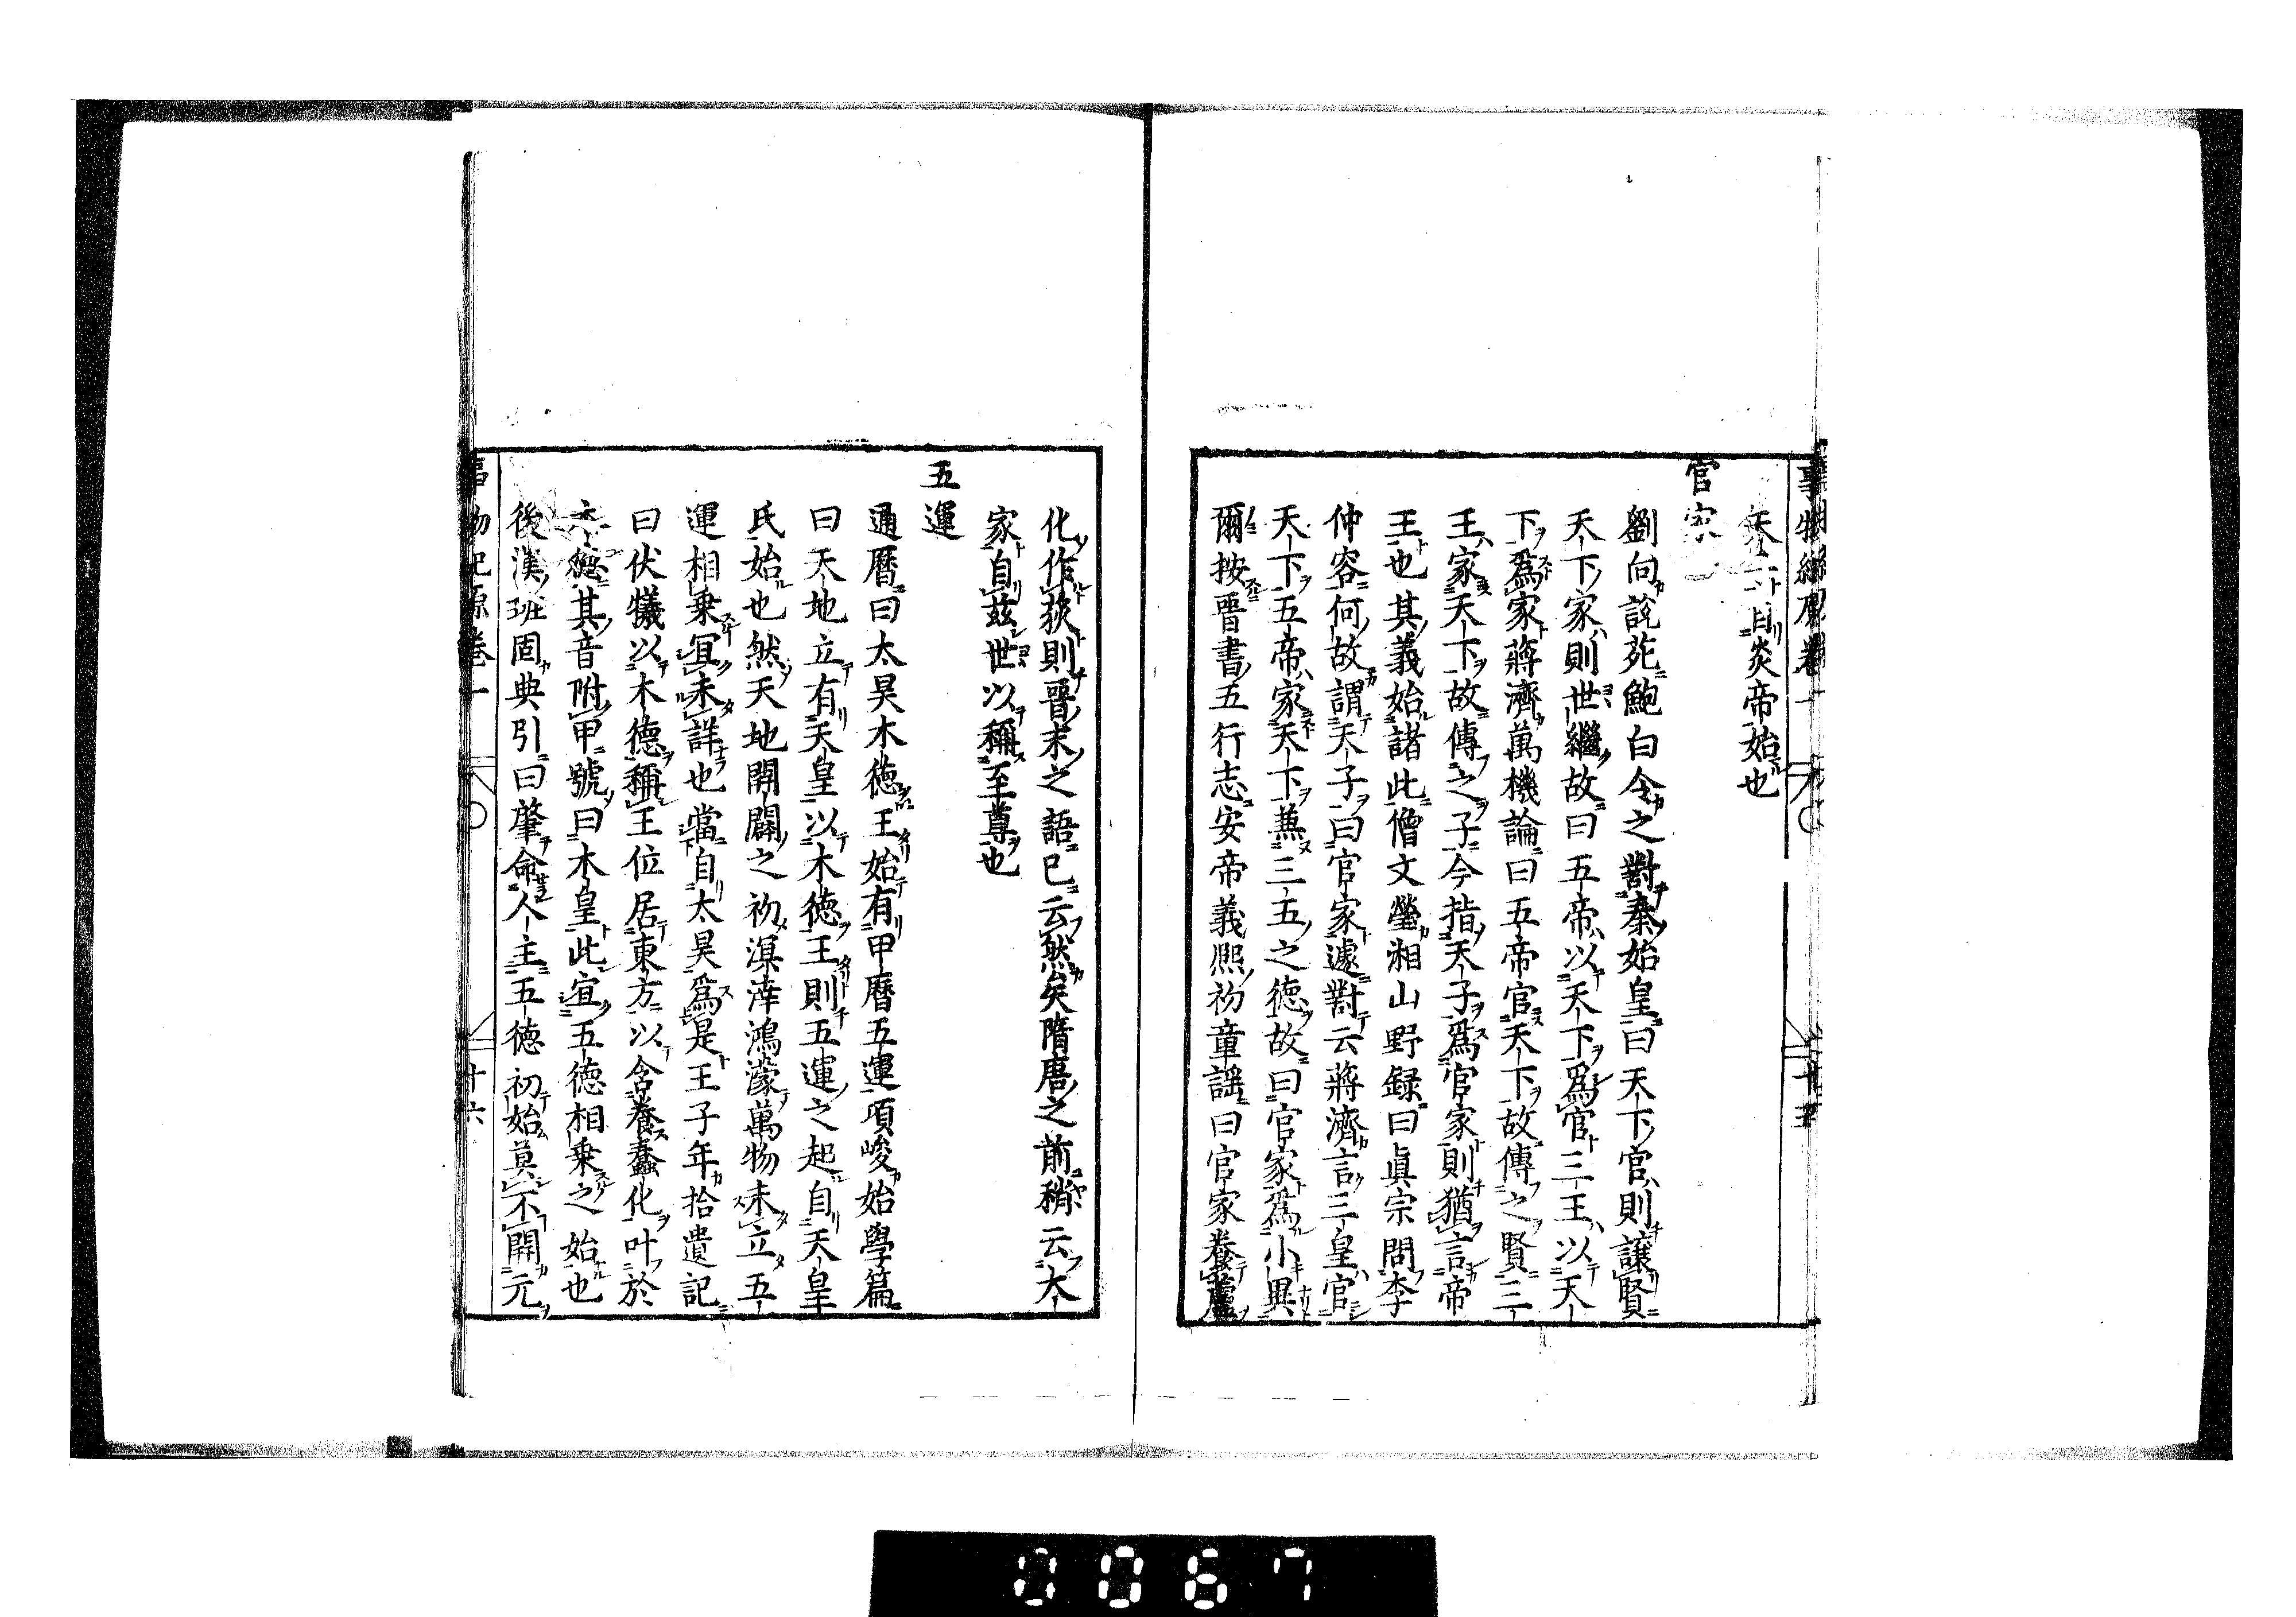 事物紀原卷一 十五
自炎帝始也
官家
劉向說苑鮑白令之對秦始皇曰天下官則讓賢
天下家則世繼故曰五帝以天下爲官三王以天
下爲家蔣濟萬機論曰五帝官天下故傳之賢三
王家天下故傳之子今指天子爲官家則猶言帝
王也其義始諸此僧文瑩湘山野録曰眞宗問李
仲容何故謂天子曰官家遽對云蔣濟言三皇官
天下五帝家天下兼三五之德故曰官家爲小異
爾按晉書五行志安帝義熙初童謡曰官家養蘆
化作荻則晉末之語已云然矣隋唐之前稍云大
家自茲世以稱至尊也
五運
通曆曰太昊木德王始有甲曆五運項峻始學篇
曰天地立有天皇以木德王則五運之起自天皇
氏始也然天地開闢之初溟涬鴻濛萬物未立五
運相乗宜未詳也當自太昊爲是王子年拾遺記
曰伏犠以木德稱王位居東方以含養蠢化叶於
木德其音附甲號曰木皇此宜五德相乗之始也
後漢班固典引曰肇命人主五德初始莫不開元
事物紀原卷一 十六
0067